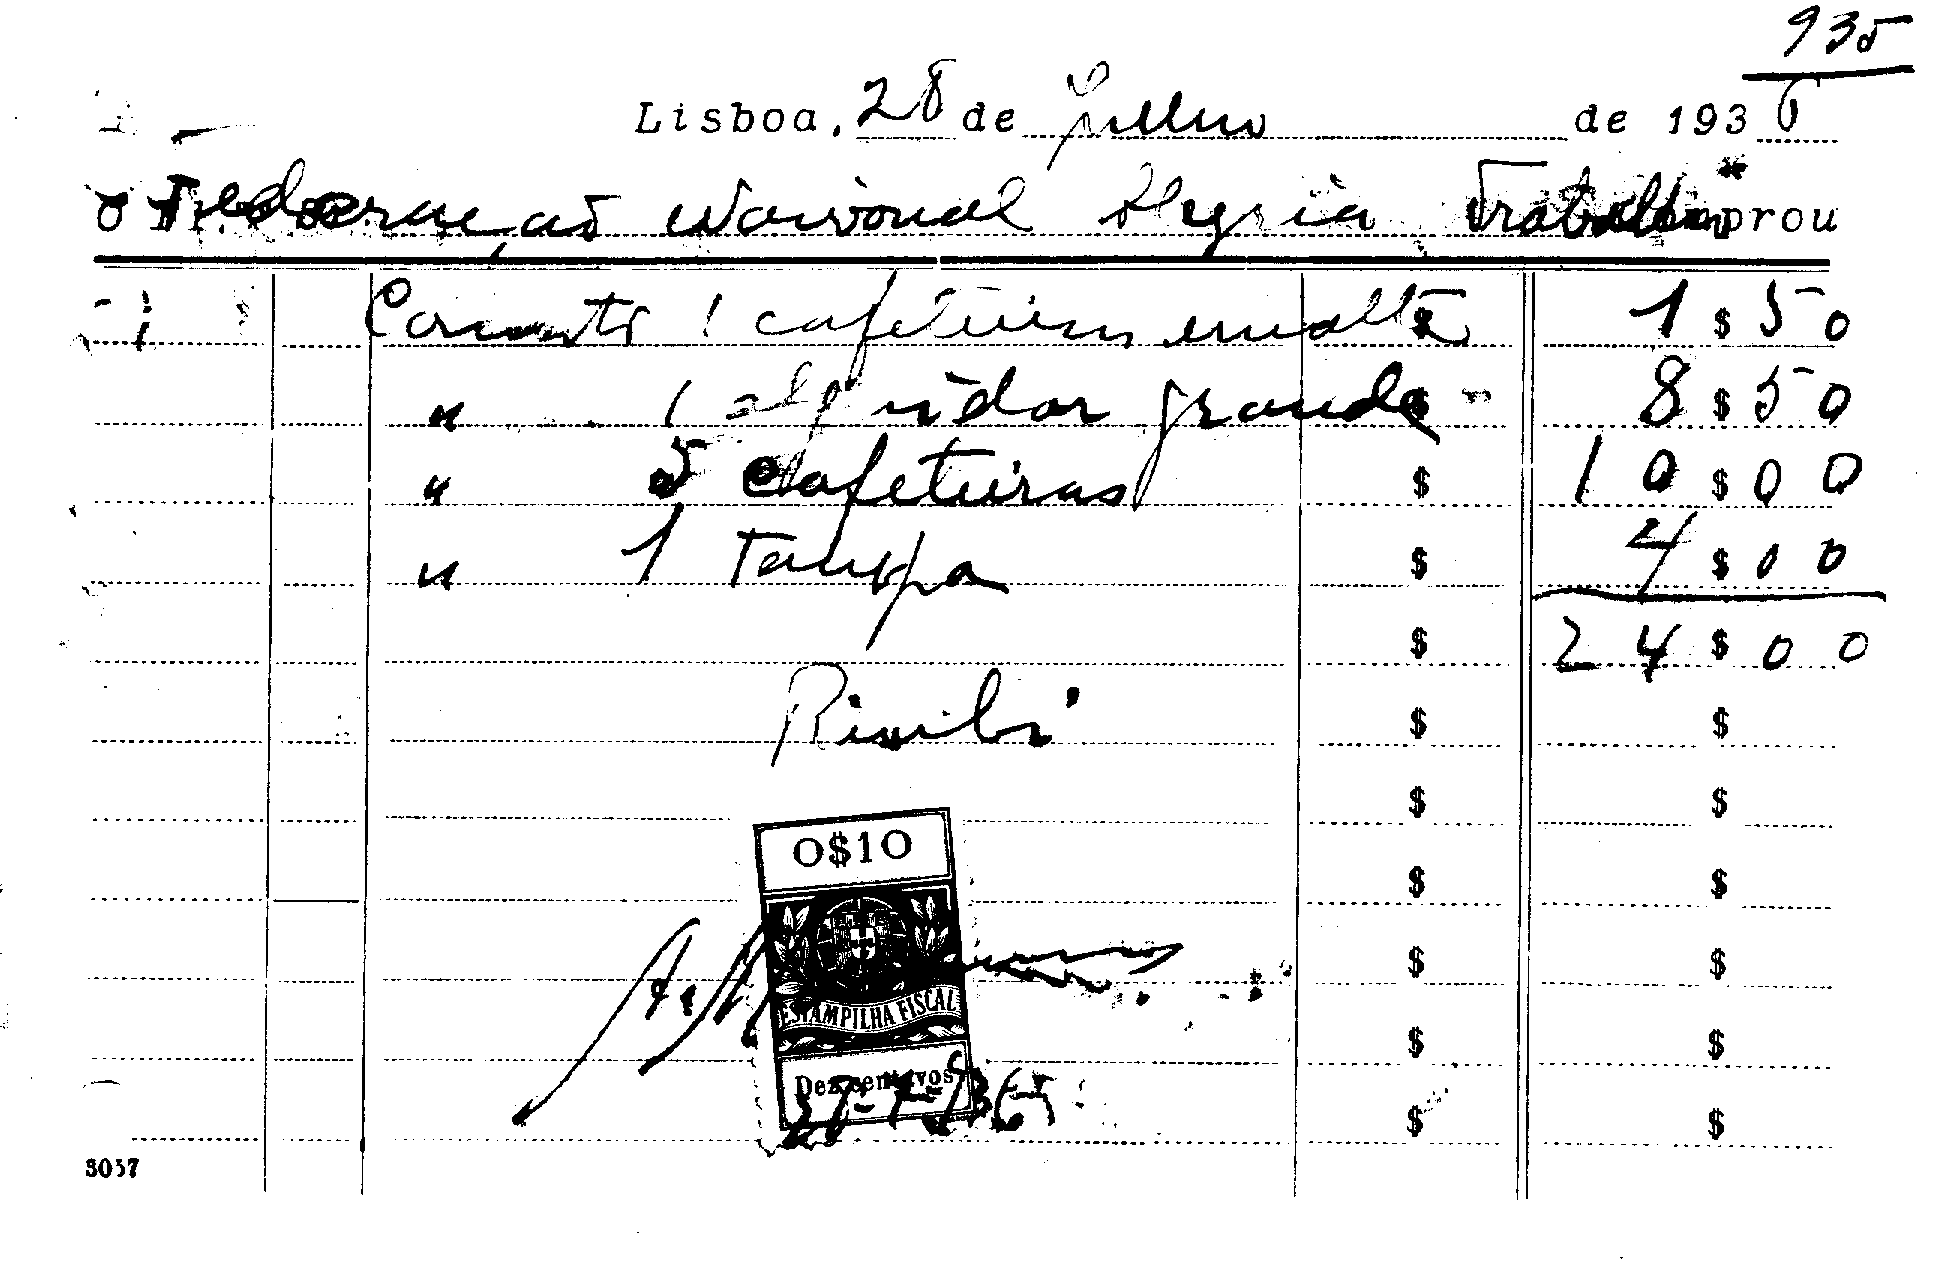 935
Lisboa, 28 de Julho de 1936
O Federação Nacional Alegria Trabalho comprou
1 cafeteira $ 1$50
" 1 alguidar grande $ 8$50
" 5 cafeteiras $ 10$00
" 1 Tampa $ 4$00
$ 24$00
Recebi $ $
$ $
0$10
$ $
$ $
ESTAMPILHA FISCAL
$ $
Dez centavos
$ $
3037